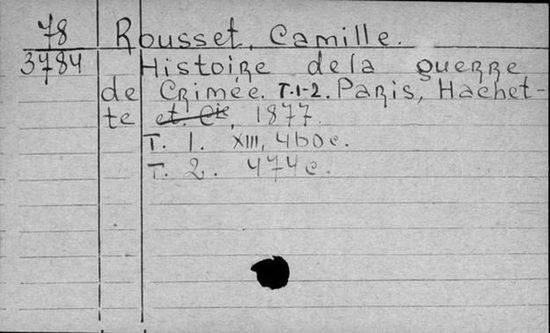 78 Rousset, Camille.
3784 Histoire de la guerre
de Crimée. T.1-2. Paris, Hachet-
te et Cie, 1877.
T. 1. XIII, 460 c.
T. 2. 474 c.